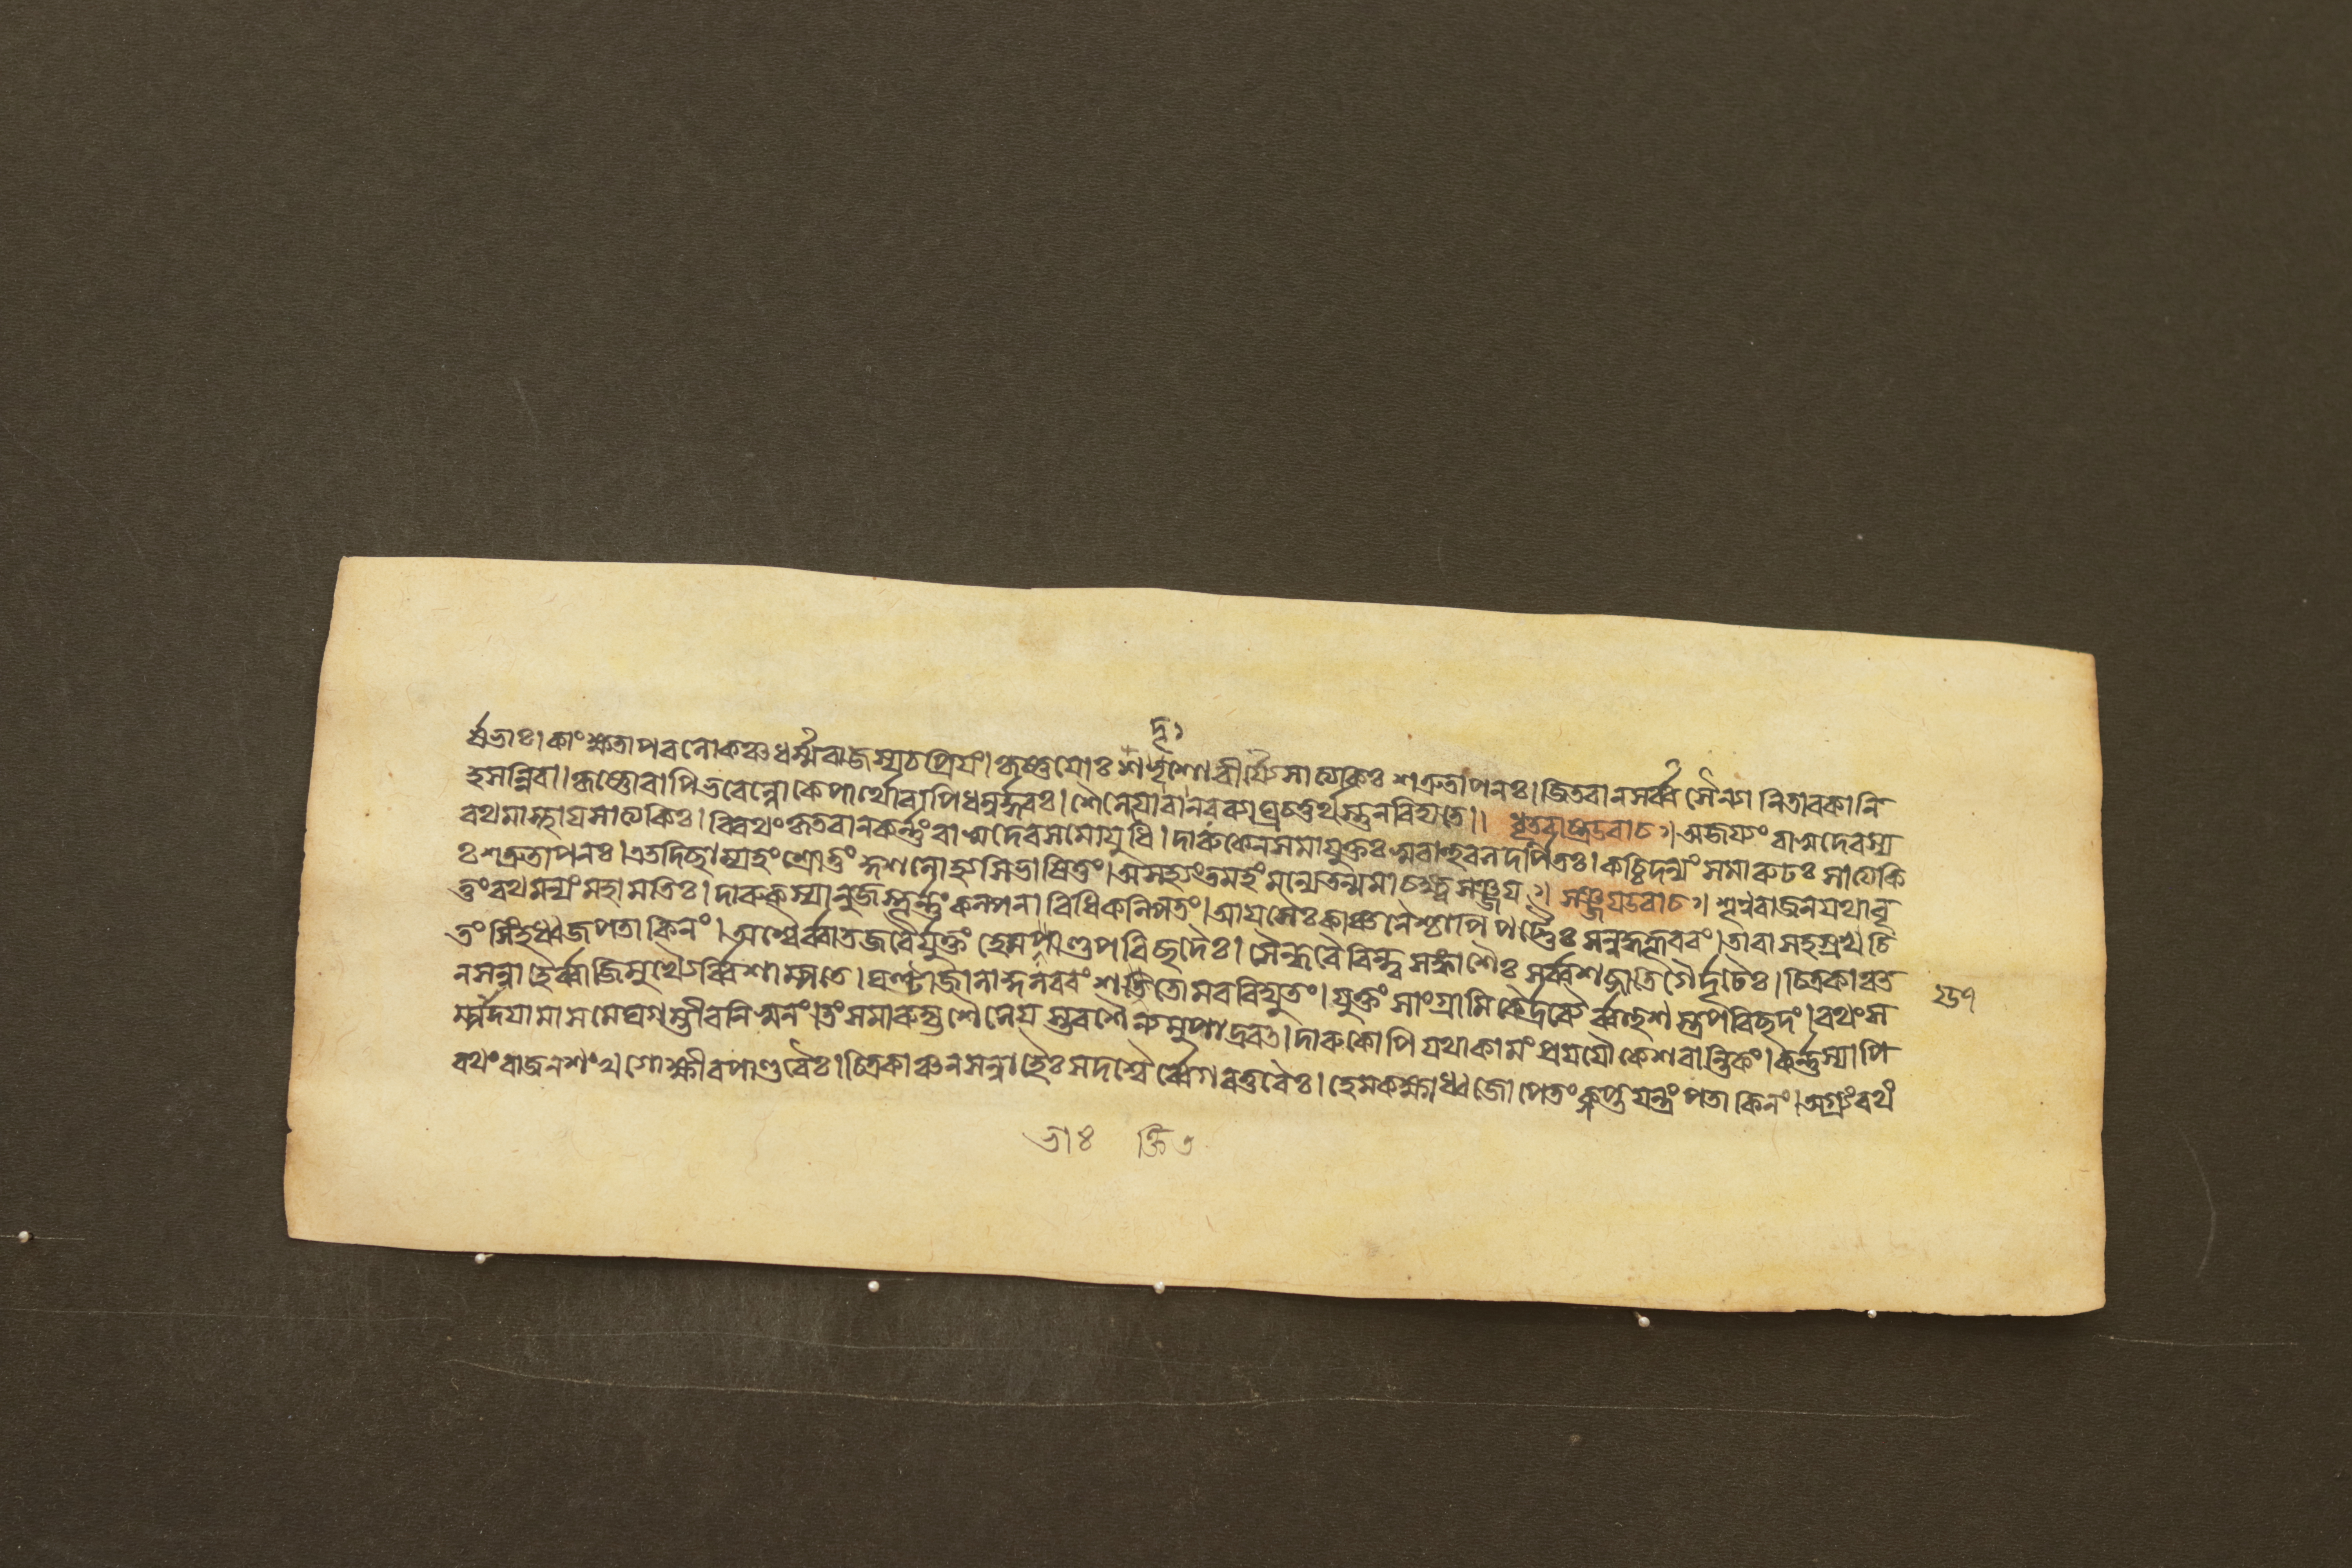 র্ষভাঃ। কাংক্ষতাপরলোকঞ্চধর্ম্মরাজস্যচপ্রিয়ং। কৃষ্ণয়োঃ শদৃশোবীর্য্যেসাত্যকিঃ শত্রুতাপনঃ। জিতবানসর্ব্বসৈন্যানিতাবকানি
হসন্নিব।। কৃষ্ণোবাপিভবেল্লোকেপার্থোবাপিধনুর্দ্ধরঃ। শৈনেয়োবানরব্যাঘ্রচতুর্থস্তুনবিদ্যতে।। ধৃতরাষ্ট্রউবাচ। অজয়্যং বাসুদেবস্য
রথমাস্থায়সাত্যকিঃ। বিরথংকৃতবানকর্ন্নং বাসুদেবসমোযুধি। দারুকেনসমাযুক্তঃ স্ববাহুবলদর্পিতঃ। কচ্চিদন্যং সমারূঢঃ সাত্যকি
ঃ শত্রুতাপনঃ। এতদিচ্ছাম্যহং শ্রোতুং কুশলোহ্যসিভাষিতুং। অসহ্যংতমহংমন্যেতন্মমাচক্ষ্বসঞ্জয়। সঞ্জয়উবাচ। শৃণুরাজনযথাবৃ
ত্তংরথমন্যংমহামতিঃ। দারুকস্যানুজস্তূর্ন্নং কল্পনাবিধিকল্পিতং। আয়সৈঃকাঞ্চনৈশ্চাপিপট্টৈঃ সন্নদ্ধকূবরং। তারাসহস্রখচি
তংসিংহধ্বজপতাকিনং। অশ্বৈর্ব্বাতজবৈর্যুক্তং হেমভাণ্ডপরিছদৈঃ। সৈন্ধবৈরিন্দুসঙ্কাশৈঃ সর্ব্বশব্দাতিগৈর্দৃঢৈঃ। চিত্রকাঞ্চ
নসন্নাহৈর্ব্বাজিমুখ্যৈর্ব্বিশাম্পতে। ঘণ্টাজালাকুলরবং শক্তিতোমরবিদ্যুতং। যুক্তং সাংগ্রামিকৈর্দ্রব্যৈর্ব্বহুশস্ত্রপরিছদং। রথংস
ম্পাদয়ামাসমেঘগম্ভীরনিস্বনং। তংসমারুহ্যশৈনেয়স্তবশৈন্যমুপাদ্রবৎ। দারুকোপিযথাকামং প্রযযৌকেশবান্তিকং। কর্ন্নস্যাপি
রথংরাজনশংখগোক্ষীরপাণ্ডুরৈঃ। চিত্রকাঞ্চনসন্নাহৈঃ সদশ্বৈর্ব্বেগবত্তরৈঃ। হেমকক্ষ্যাধ্বজোপেতংকৢপ্তযন্ত্রং পতাকিনং। অগ্র্যংরথং